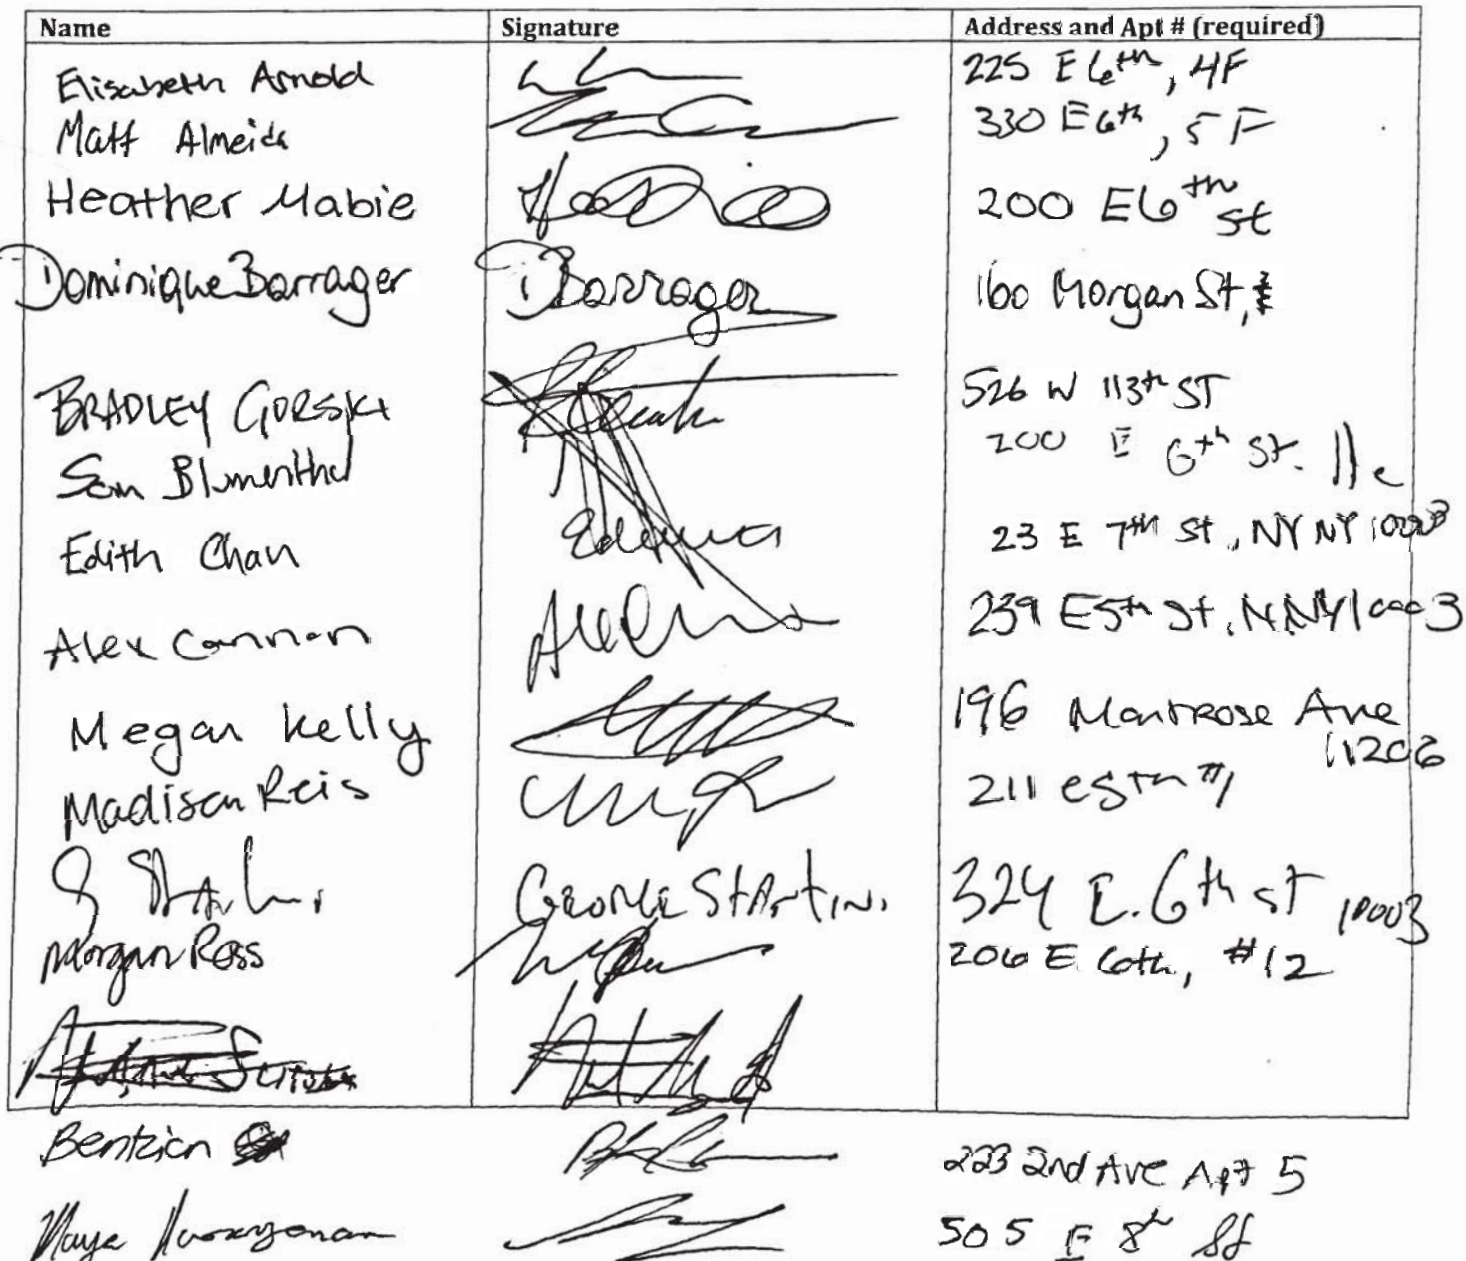 Name Signature Address and Apt # (required)
Elisabeth Arnold 225 E 6th, 4F
Matt Almeida 330 E 6th, 5F
Heather Mabie 200 E 6th St
Dominique Barrager DBarrager 160 Morgan St,
BRADLEY GORSKI 526 W 113th ST
Sam Blumenthal 200 E 6th St. 11c
Edith Chan 23 E 7th St, NY NY 10003
Alex Cannon 239 E 5th St, N.NY 10003
Megan Kelly 196 Montrose Ave
11206
Madison Reis 211 e 5th #1
George Startini 324 E. 6th St 10003
Morgan Ross 206 E 6th, #12
Bentzion 223 2nd Ave Apt 5
Maya 505 E 8th St